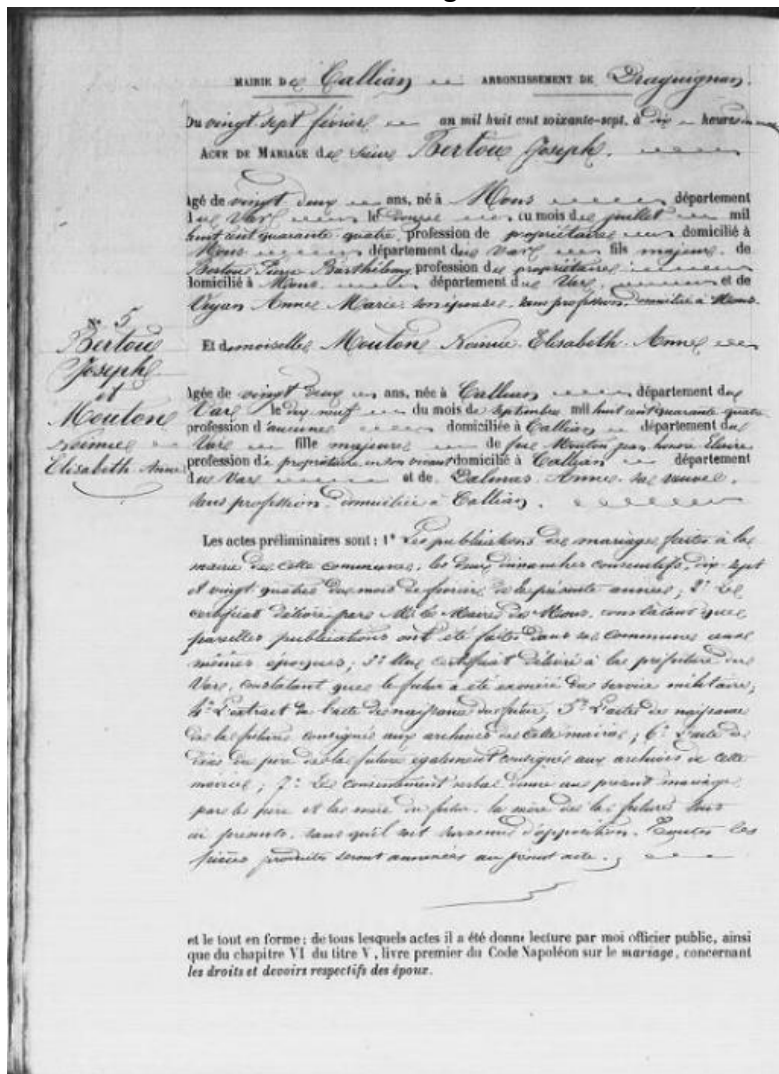 MAIRIE De Callian ARRONDISSEMENT DE Draguignan
Du vingt sept février an mil huit cent soixante-sept, à dix heures
ACTE DE MARIAGE de sieur Bertou Joseph.
Agé de vingt deux ans, né à Mons département
du Var le douze du mois de juillet mil
huit cent quarante quatre, profession de propriétaire domicilié à
Mons département du Var fils majeur de
Bertou Pierre Barthélemy profession de propriétaire
domicilié à Mons département du Var et de
Veyan Anne Marie son épouse, sans profession, domiciliée à Mons.
N° 5
Bertou
Joseph
et
Mouton
Noimie
Elisabeth Anne
Et demoiselle Mouton Noimie Elisabeth Anne
Agée de vingt deux ans, née à Callian département du
Var le dix neuf du mois de septembre mil huit cent quarante quatre
profession d'aucune domiciliée à Callian département du
Var fille majeure de feu Mouton jean honoré
profession de propriétaire en son vivant domicilié à Callian département
du Var et de Dalmas Anne sa veuve,
sans profession domiciliée à Callian
Les actes préliminaires sont : 1° Les publications de mariage faites à la
mairie de cette commune, les deux dimanches consécutifs, dix sept
et vingt quatre du mois de février de la présente année ; 2° Le
certificat délivré par Mr le Maire de Mons, constatant que
pareilles publications ont été faites dans sa commune aux
mêmes époques ; 3° Un certificat délivré à la préfecture du
Var, constatant que le futur a été exonéré du service militaire ;
4° L'extrait de l'acte de naissance du futur ; 5° L'acte de naissance
de la future consigné aux archives de cette mairie ; 6° L'acte de
décès du père de la future également consigné aux archives de cette
mairie ; 7° Le consentement verbal donné au présent mariage
par le père et la mère du futur, la mère de la future tous
ici présents, sans qu'il soit survenu d'opposition. Toutes les
pièces produites seront annexées au présent acte.
et le tout en forme ; de tous lesquels actes il a été donné lecture par moi officier public, ainsi
que du chapitre VI du titre V, livre premier du Code Napoléon sur le mariage, concernant
les droits et devoirs respectifs des époux.